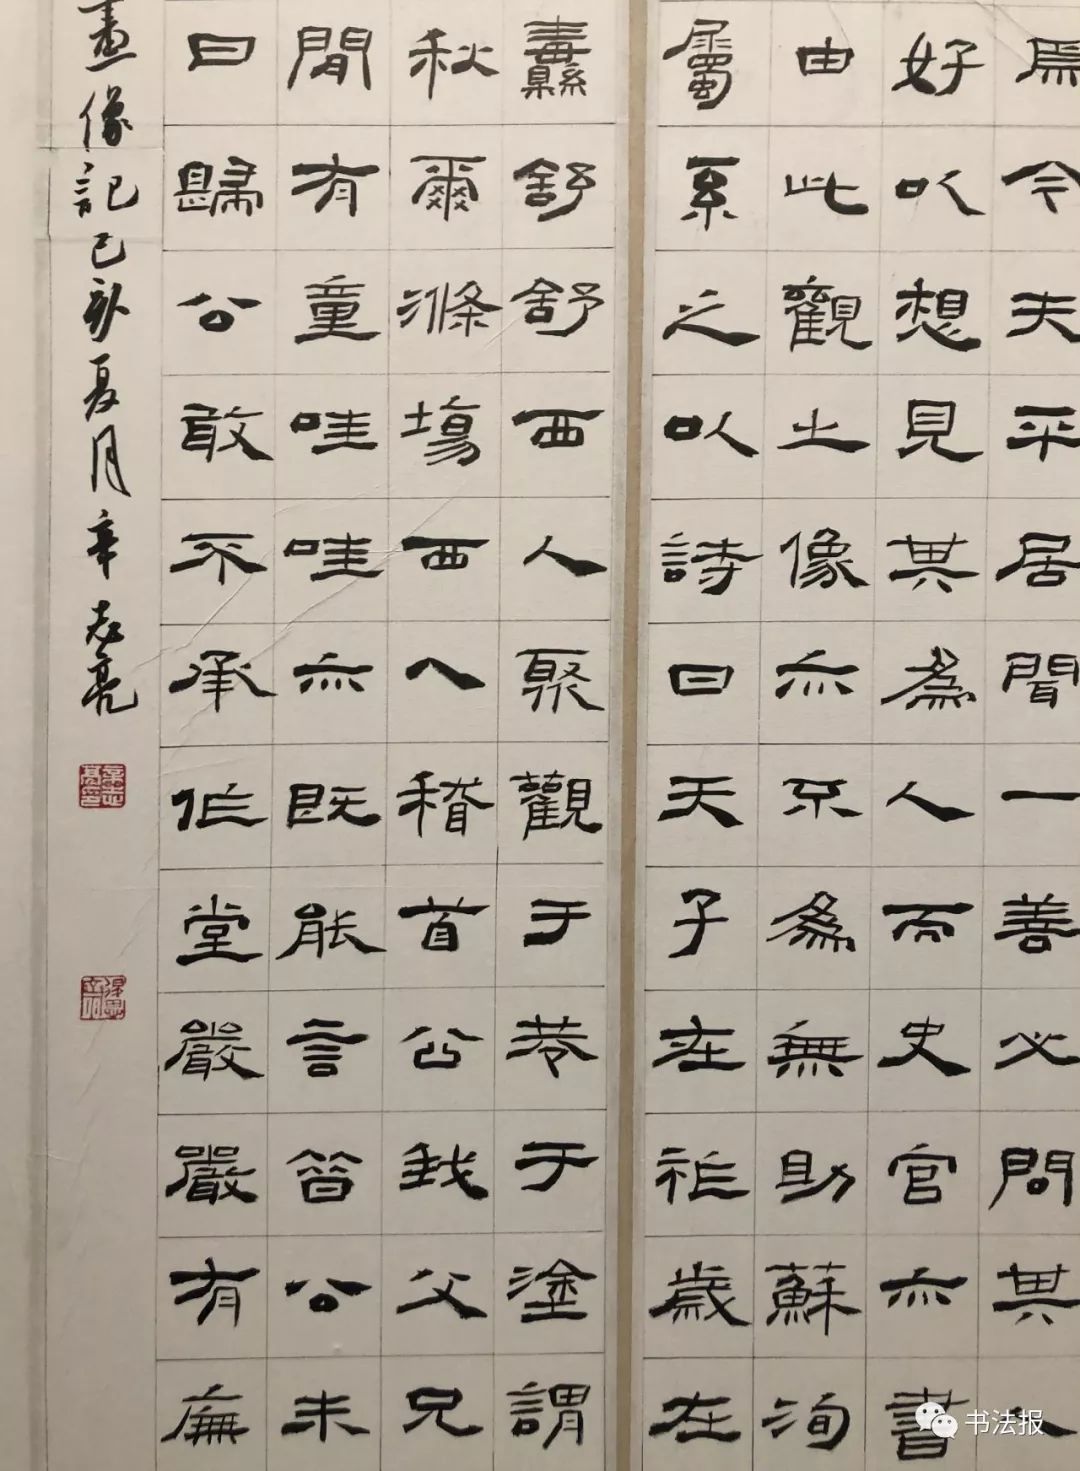 焉今夫平居聞一善必問其人
好以想見其為人而史官亦書
由此觀之像亦不為無助蘇洵
屬系之以詩曰天子在祚歲在
纛舒舒西人聚觀于巷于塗謂
秋爾滌場西人稽首公我父兄
閒有童哇哇亦既能言昔公未
曰歸公敢不承作堂嚴嚴有廡
畫像記己亥夏月辛志亮
书法报